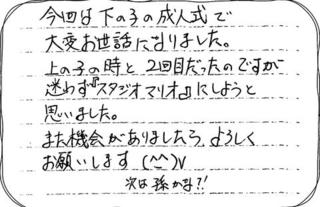 今回は下の子の成人式で
大変お世話になりました。
上の子の時と2回目だったのですが
迷わず『スタジオマリオ』にしようと
思いました。
また機会がありましたら、よろしく
お願いします (^^)v
次は孫かな?!